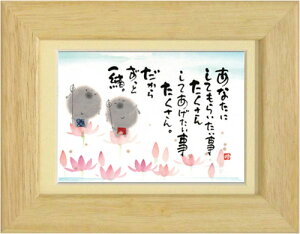 あなたに
してもらいたい事
たくさん
してあげたい事
たくさん。
だから
ずっと
一緒。